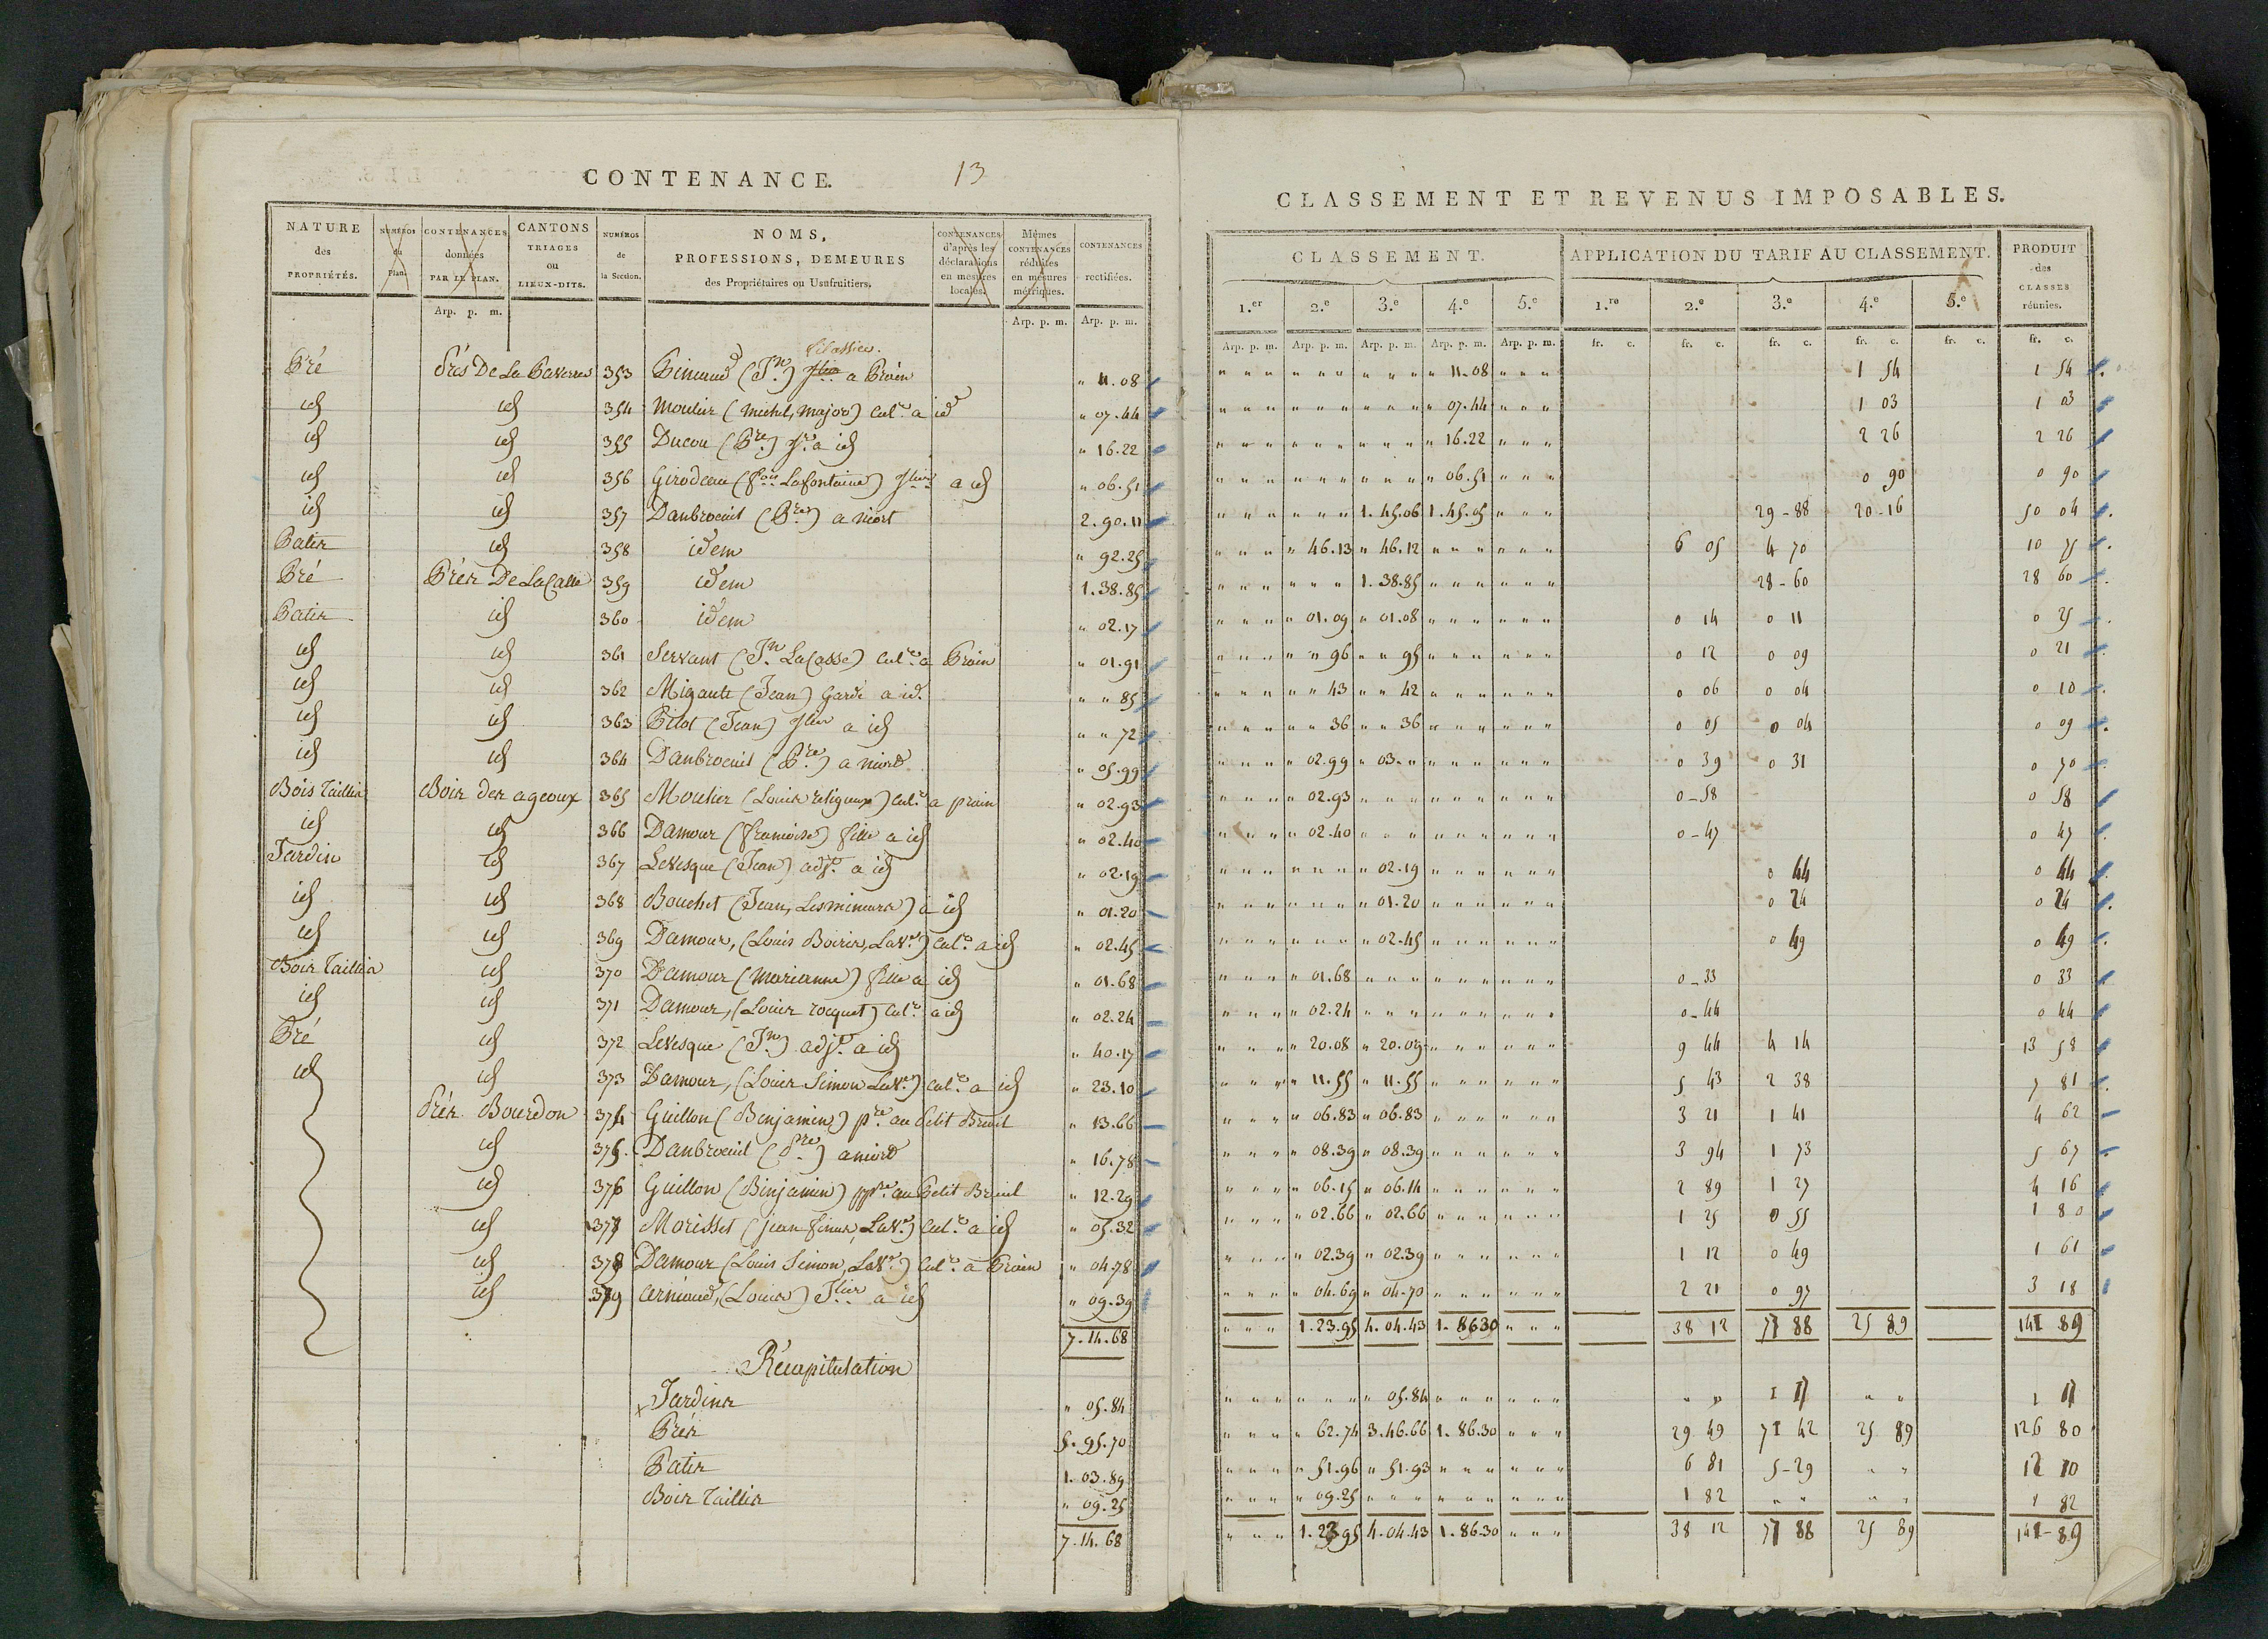 CONTENANCE. 13
NATURE des PROPRIÉTÉS. NUMÉROS du Plan. CONTENANCES données PAR LE PLAN. CANTONS TRIAGES OU LIEUX-DITS. NUMÉROS de la Section. NOMS, PROFESSIONS, DEMEURES des Propriétaires ou Usufruitiers. CONTENANCES d'après les déclarations en mesures locales. Mêmes CONTENANCES réduites en mesures métriques. CONTENANCES rectifiées.
Arp. p. m. Arp. p. m. Arp. p. m.
filassier.
Pré Prés De La Taverne 353 (Jn) a Prain " 11.08
id id 354 Moulier (michel, major) culr. a id " 07.44
id id 355 Ducou (Pre) Jr. a id " 16.22
id id 356 Girodeau (fois Lafontaine) Jlier a id " 06.51
id id 357 Daubroeuil (Pre) a niort 2.90.11
Patis id 358 idem " 92.25
Pré Prés De La Calle 359 idem 1.38.85
Patis id 360 idem " 02.17
id id 361 Servant (Jn. LaCasse) Culr. a Prain " 01.91
id id 362 Migault (Jean) Garde a id. " " 85
id id 363 Pilot (Jean) Jlier a id " " 72
id id 364 Daubroeuil (Pre) a niord " 05.99
Bois Taillis Bois des ageoux 365 Moulier (Louis religieux) Culr. a prain " 02.93
id id 366 Damour (francoise) fille a id " 02.40
Jardin id 367 Levesque (Jean) adjt. a id " 02.19
id id 368 Bouchet (Jean, Lesmineurs) a id " 01.20
id id 369 Damour, (Louis Boirie, Lave) Culr. a id " 02.45
Bois Taillis id 370 Damour (marianne) fille a id " 01.68
id id 371 Damour, (Louis rocquet) Culr. a id " 02.24
Pré id 372 Levesque (Jn) adjt. a id " 40.17
id id 373 Damour, (Louis Simon Lave) Culr. a id " 23.10
Prés Bourdon 374 Guillon (Benjamin) pre. au Petit Breuil " 13.66
id 375. Daubroeuil (Pre) a niord " 16.78
id 376 Guillon (Binjamin) ppre. au Petit Breuil " 12.29
id 377 Morisset (jean finus, Lave) Culr. a id " 05.32
id 378 Damour (Louis Simon, Lave) Culr. a Prain " 04.78
id 379 arniaud, (Louis) Jlier a id " 09.39
7.14.68
Récapitulation
x Jardins " 05.84
Prés 5.95.70
Patis 1.03.89
Bois Taillis " 09.25
7.14.68
CLASSEMENT ET REVENUS IMPOSABLES.
CLASSEMENT. APPLICATION DU TARIF AU CLASSEMENT. PRODUIT des CLASSES réunies.
1.er 2.e 3.e 4.e 5.e 1.re 2.e 3.e 4.e 5.e
Arp. p. m. Arp. p. m. Arp. p. m. Arp. p. m. Arp. p. m. fr. c. fr. c. fr. c. fr. c. fr. c. fr. c.
" " " " " " " " " " 11.08 " " " 1 54 1 54
" " " " " " " " " " 07.44 " " " 1 03 1 03
" " " " " " " " " " 16.22 " " " 2 26 2 26
" " " " " " " " " " 06.51 " " " 0 90 0 90
" " " " " " 1.45.06 1.45.05 " " " 29-88 20-16 50 04
" " " " 46.13 " 46.12 " " " " " " 6 05 4 70 10 75
" " " " " " 1.38.85 " " " " " " 28-60 28 60
" " " " 01.09 " 01.08 " " " " " " 0 14 0 11 0 25
" " " " " 96 " " 95 " " " " " " 0 12 0 09 0 21
" " " " " 43 " " 42 " " " " " " 0 06 0 04 0 10
" " " " " 36 " " 36 " " " " " " 0 05 0 04 0 09
" " " " 02.99 " 03. " " " " " " " 0 39 0 31 0 70
" " " " 02.93 " " " " " " " " " 0-58 0 58
" " " " 02.40 " " " " " " " " " 0-47 0 47
" " " " " " " 02.19 " " " " " " 0 44 0 44
" " " " " " " 01.20 " " " " " " 0 24 0 24
" " " " " " " 02.45 " " " " " " 0 49 0 49
" " " " 01.68 " " " " " " " " " 0-33 0 33
" " " " 02.24 " " " " " " " " " 0-44 0 44
" " " " 20.08 " 20.09 " " " " " " 9 44 4 14 13 58
" " " " 11.55 " 11.55 " " " " " " 5 43 2 38 7 81
" " " " 06.83 " 06.83 " " " " " " 3 21 1 41 4 62
" " " " 08.39 " 08.39 " " " " " " 3 94 1 73 5 67
" " " " 06.15 " 06.14 " " " " " " 2 89 1 27 4 16
" " " " 02.66 " 02.66 " " " " " " 1 25 0 55 1 80
" " " " 02.39 " 02.39 " " " " " " 1 12 0 49 1 61
" " " " 04.69 " 04.70 " " " " " " 2 21 0 97 3 18
" " " 1.23.95 4.04.43 1.86.30 " " " 38 12 77 88 25 89 141 89
" " " " " " " 05.84 " " " " " " " " 1 17 " " 1 17
" " " " 62.74 3.46.66 1.86.30 " " " 29 49 71 42 25 89 126 80
" " " " 51.96 " 51.93 " " " " " " 6 81 5-29 " " 12 10
" " " " 09.25 " " " " " " " " " 1 82 " " " " 1 82
" " " 1.23.95 4.04.43 1.86.30 " " " 38 12 77 88 25 89 141-89